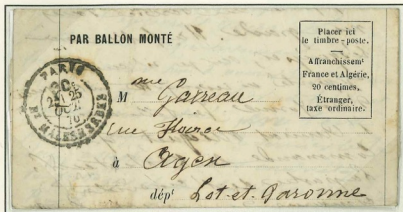 PAR BALLON MONTÉ
Placer ici
le timbre-poste.
Affranchissemt
France et Algérie,
20 centimes.
Étranger,
taxe ordinaire.
PARIS
25
OCT.
70
BT MALESHERBES
Mme Garreau
rue
à Agen
dépt Lot-et-Garonne